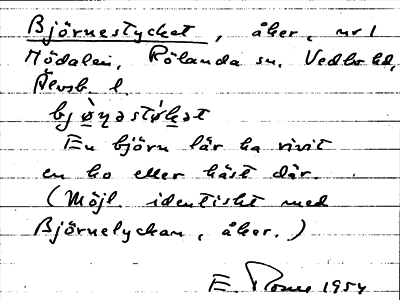 Björnestycket, åker, nr 1
Mödalen, Rölanda sn. Vedbo hd,
Älvsb. l.
bjø̀ṇastýkət
En björn lär ha rivit
en ko eller häst där.
(Möjl. identiskt med
Björnelyckan, åker.)
E. 1954